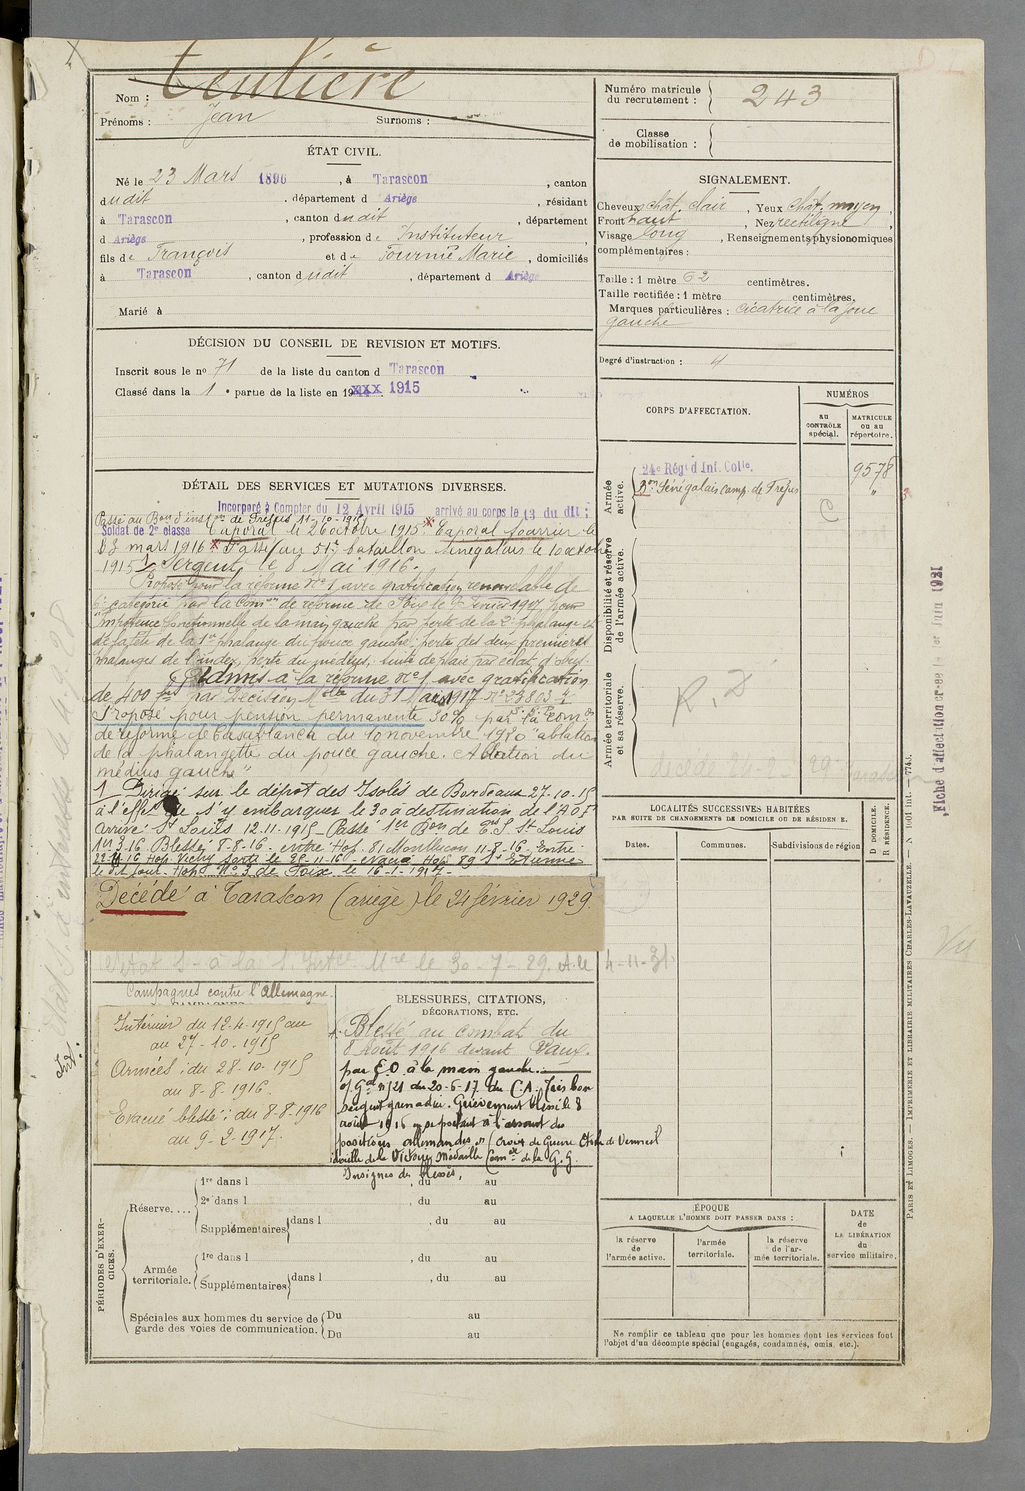 Nom : Teulière
Prénoms : Jean Surnoms :
Numéro matricule du recrutement : 243
Classe de mobilisation :
ÉTAT CIVIL.
Né le 23 Mars 1896, à Tarascon, canton
dudit, département d Ariège, résidant
à Tarascon, canton dudit, département
d Ariège, profession d'Instituteur
fils de François et de Fournié Marie, domiciliés
à Tarascon, canton dudit, département d Ariège
Marié à
DÉCISION DU CONSEIL DE REVISION ET MOTIFS.
Inscrit sous le no 71 de la liste du canton d Tarascon
Classé dans la 1e partie de la liste en 19xxx 1915
SIGNALEMENT.
Cheveux chât. clair, Yeux chât. moyen,
Front haut, Nez rectiligne,
Visage long, Renseignements physionomiques
complémentaires :
Taille : 1 mètre 62 centimètres.
Taille rectifiée : 1 mètre centimètres.
Marques particulières : cicatrice à la joue
gauche
Degré d'instruction : 4
DÉTAIL DES SERVICES ET MUTATIONS DIVERSES.
Incorporé à Compter du 12 Avril 1915 arrivé au corps le 13 du dit ;
Passé au Bon d'inston de Fréjus 11-10-1915
Soldat de 2e classe Caporal le 26 octobre 1915. Caporal fourrier le
13 mars 1916 Passé au 51e bataillon Sénégalais le 10 octobre
1915 Sergent le 8 Mai 1916.
Proposé pour la réforme no 1 avec gratification renouvelable de
6e catégorie par la Comon de réforme de Foix le février 1917 pour
Impotence fonctionnelle de la main gauche par perte de la 2e phalange et
de la tête de la 1re phalange du pouce gauche ; perte des deux premières
phalanges de l'index, perte du médius, suite de plaie par éclat d'obus.
Admis à la réforme no 1 avec gratification
de 400 frs par Décision Mlle du 31 Mars 1917 No 23803-4
Proposé pour pension permanente 30% par la Comon
de réforme de Casablanca du 10 novembre 1920 "ablation
de la phalangette du pouce gauche. Ablation du
médius gauche"
1 Dirigé sur le dépôt des Isolés de Bordeaux 27-10-15
à l'effet de s'y embarquer le 30 à destination de l'AOF
arrivé St Louis 12-11-1915 - Passé 1er Bon de St Louis
1er 3-16. Blessé 8-8-16 - entré Hop. 81 Montluçon 11-8-16. Entré
Hop. Vichy sorti le 28-11-16 - Evacué Hop. 89 St Etienne
le dit jour - Hopl No 3 de Foix le 16-1-1917 -
Décédé à Tarascon (ariège) le 24 février 1929.
le 30-7-29. 4-11-31
CORPS D'AFFECTATION.
NUMÉROS
au CONTRÔLE spécial.
MATRICULE ou au répertoire.
Armée active.
24e Régt d'Inf. Colle. 9578
Bon Sénégalais Camp de Fréjus "
Disponibilité et réserve de l'armée active.
Armée territoriale et sa réserve.
décédé 24-2-29 Tarascon
LOCALITÉS SUCCESSIVES HABITÉES
PAR SUITE DE CHANGEMENTS DE DOMICILE OU DE RÉSIDENCE.
Dates. Communes. Subdivisions de région
D DOMICILE. R RÉSIDENCE.
Campagnes contre l'Allemagne.
Intérieur du 12-4-1915 au
au 27-10-1915
Armées : du 28-10-1915
au 8-8-1916.
Evacué blessé : du 8-8-1916
au 9-2-1917.
BLESSURES, CITATIONS,
DÉCORATIONS, ETC.
Blessé au combat du
8 Août 1916 devant Vaux.
par E.O à la main gauche.
O/ Gal no 521 du 20-6-17 du C.A. Très bon
sergent grenadier. Grièvement blessé le 8
août 1916 en se portant à l'assaut des
positions allemandes (Croix de Guerre Etoile de Vermeil
Médaille de la Victoire Médaille Come de la G. G.
Insignes des blessés,
PÉRIODES D'EXERCICES.
Réserve....
1re dans l , du au
2e dans l , du au
Supplémentaires dans l , du au
Armée territoriale.
1re dans l , du au
Supplémentaires dans l , du au
Spéciales aux hommes du service de garde des voies de communication.
Du au
Du au
ÉPOQUE
A LAQUELLE L'HOMME DOIT PASSER DANS :
la réserve de l'armée active.
l'armée territoriale.
la réserve de l'armée territoriale.
DATE de LA LIBÉRATION du service militaire.
Ne remplir ce tableau que pour les hommes dont les services font
l'objet d'un décompte spécial (engagés, condamnés, omis, etc.).
PARIS ET LIMOGES. — IMPRIMERIE ET LIBRAIRIE MILITAIRES CHARLES-LAVAUZELLE.
Fiche d'affectation créée le 1er Juin 1921
Vu